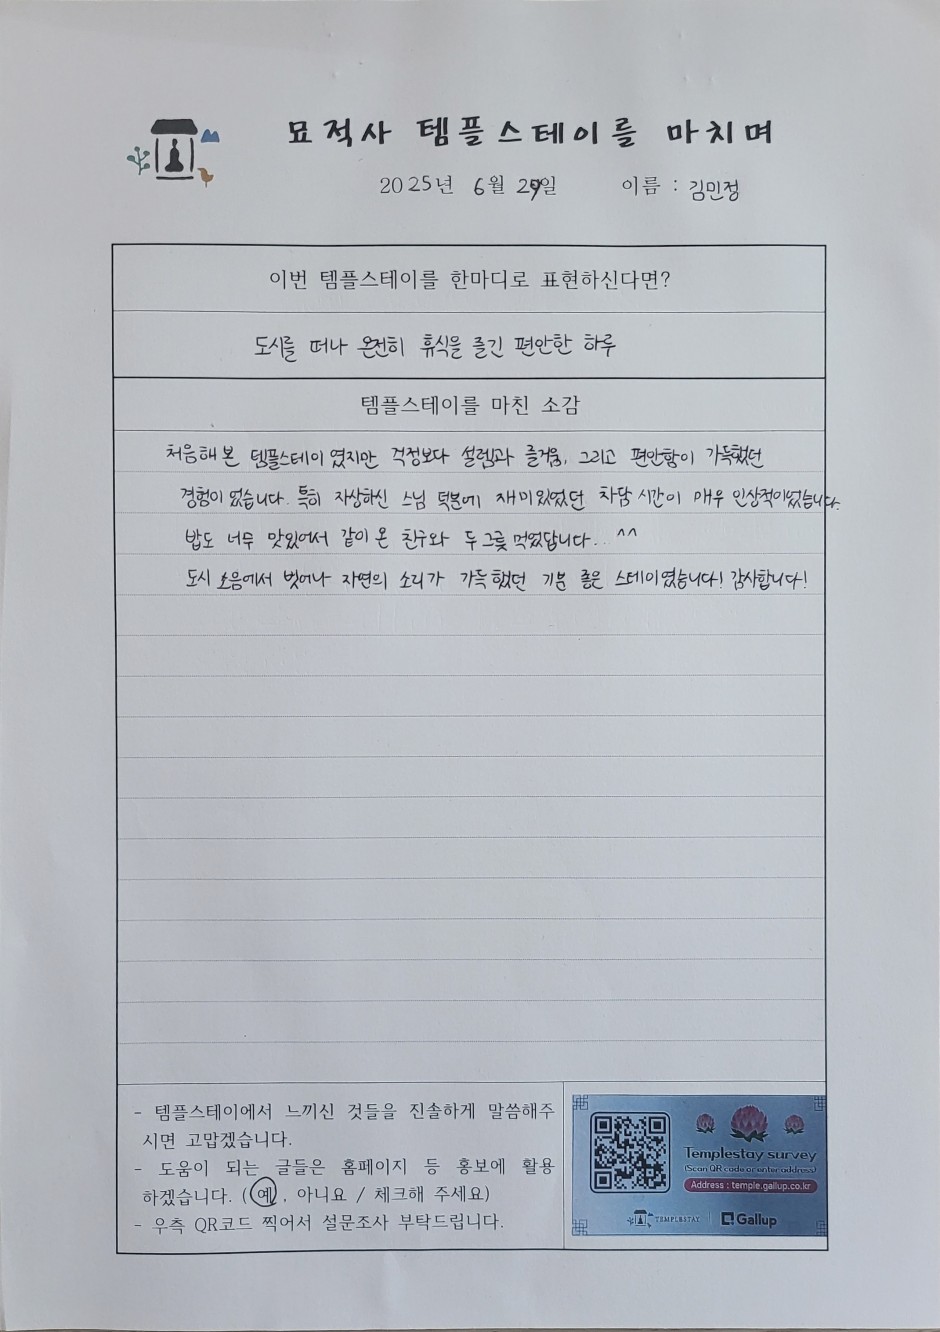 묘적사 템플스테이를 마치며
2025년 6월 29일 이름 : 김민정
이번 템플스테이를 한마디로 표현하신다면?
도시를 떠나 온전히 휴식을 즐긴 편안한 하루
템플스테이를 마친 소감
처음해 본 템플스테이였지만 걱정보다 설렘과 즐거움, 그리고 편안함이 가득했던
경험이었습니다. 특히 자상하신 스님 덕분에 재미있었던 차담 시간이 매우 인상적이었습니다.
밥도 너무 맛있어서 같이 온 친구와 두 그릇 먹었답니다.. ^^
도시 소음에서 벗어나 자연의 소리가 가득했던 기분 좋은 스테이였습니다! 감사합니다!
- 템플스테이에서 느끼신 것들을 진솔하게 말씀해주
시면 고맙겠습니다.
- 도움이 되는 글들은 홈페이지 등 홍보에 활용
하겠습니다. (예, 아니요 / 체크해 주세요)
- 우측 QR코드 찍어서 설문조사 부탁드립니다.
Templestay survey
(Scan QR code or enter address)
Address : temple.gallup.co.kr
TEMPLESTAY | Gallup